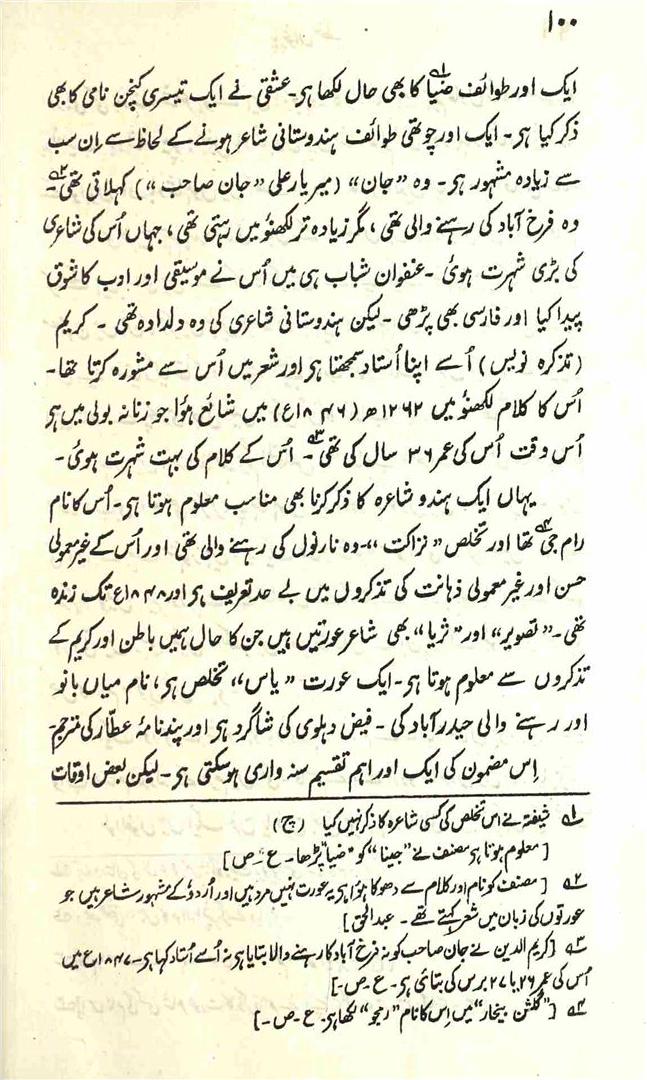 ۱۰۰
ایک اور طوائف ضیا۱ کا بھی حال لکھا ہر۔ عشقی نے ایک تیسری کنچن نامی کا بھی
ذکر کیا ہر۔ ایک اور چوتھی طوائف ہندوستانی شاعر ہونے کے لحاظ سے اِن سب
سے زیادہ مشہور ہر۔ وہ "جان" (میر یار علی "جان صاحب") کہلاتی تھی۲۔
وہ فرخ آباد کی رہنے والی تھی، مگر زیادہ تر لکھنؤ میں رہتی تھی، جہاں اُس کی شاعری
کی بڑی شہرت ہوئی۔ عنفوان شباب ہی میں اُس نے موسیقی اور ادب کا شوق
پیدا کیا اور فارسی بھی پڑھی۔ لیکن ہندوستانی شاعری کی وہ دلدادہ تھی۔ کریم
(تذکرہ نویس) اُسے اپنا اُستاد سمجھتا ہر اور شعر میں اُس سے مشورہ کرتا تھا۔
اُس کا کلام لکھنؤ میں ۱۲۶۲ھ (۱۸۴۶ع) میں شائع ہؤا جو زنانہ بولی میں ہر
اُس وقت اُس کی عمر ۳۶ سال کی تھی۳۔ اُس کے کلام کی بہت شہرت ہوئی۔
یہاں ایک ہندو شاعرہ کا ذکر کرنا بھی مناسب معلوم ہوتا ہر۔ اُس کا نام
رام جی۴ تھا اور تخلص "نزاکت"۔ وہ نارنول کی رہنے والی تھی اور اُس کے غیر معمولی
حسن اور غیر معمولی ذہانت کی تذکروں میں بے حد تعریف ہر اور ۱۸۴۸ع تک زندہ
تھی۔ "تصویر" اور "ثریا" بھی شاعر عورتیں ہیں جن کا حال ہمیں باطن اور کریم کے
تذکروں سے معلوم ہوتا ہر۔ ایک عورت "یاس" تخلص ہر، نام میاں بانو
اور رہنے والی حیدرآباد کی۔ فیض دہلوی کی شاگرد ہر اور پندنامۂ عطّار کی مترجم۔
اِس مضمون کی ایک اور اہم تقسیم سنہ واری ہو سکتی ہر۔ لیکن بعض اوقات
۱؎ شیفتہ نے اس تخلص کی کسی شاعرہ کا ذکر نہیں کیا (ج)
[معلوم ہوتا ہر مصنف نے "جینا" کو "ضیا" پڑھا۔ ع۔ ص]
۲؎ [مصنف کو نام اور کلام سے دھوکا ہؤا ہر یہ عورت نہیں مرد ہیں اور اُردؤ کے مشہور شاعر ہیں جو
عورتوں کی زبان میں شعر کہتے تھے۔ عبدالحق]
۳؎ [کریم الدین نے جان صاحب کو نہ فرخ آباد کا رہنے والا بتایا ہر نہ اُسے اُستاد کہا ہر۔ ۱۸۴۷ع میں
اُس کی عمر ۲۶ یا ۲۷ برس کی بتائی ہر۔ ع۔ ص۔]
۴؎ ["گلشن بیخار" میں اِس کا نام "رمجو" لکھا ہر۔ ع۔ ص۔]